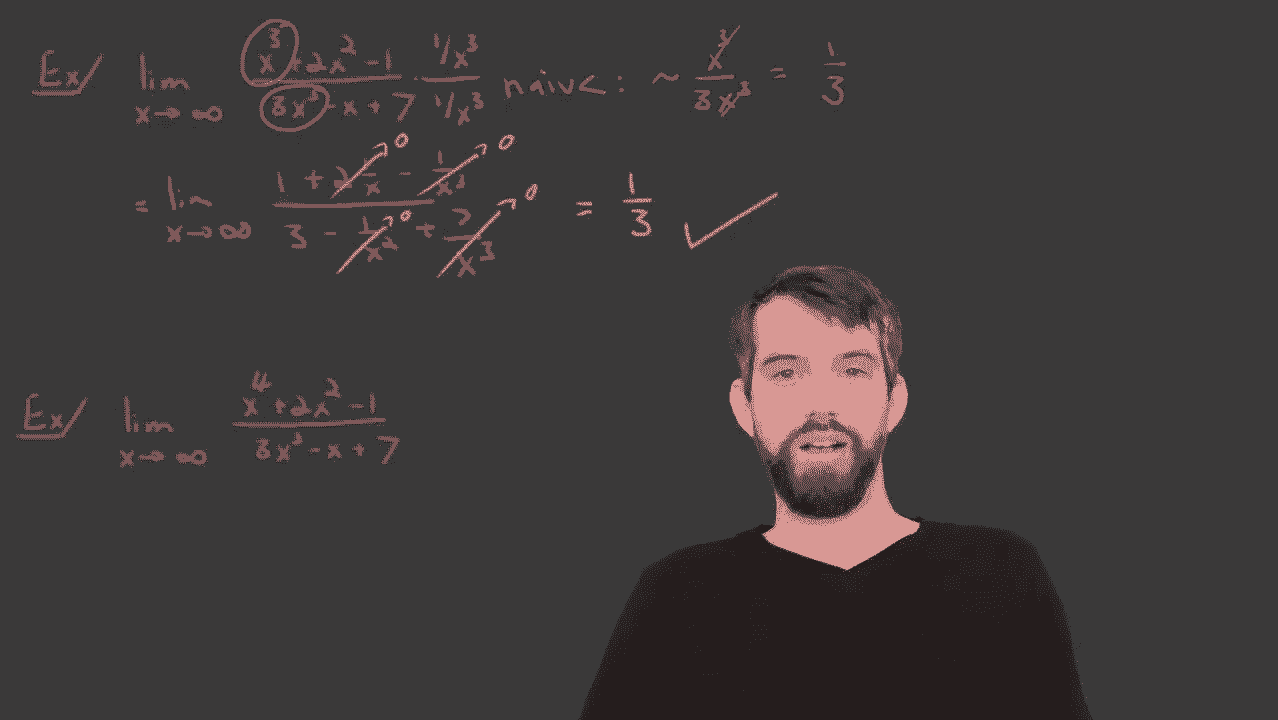 Ex/ lim x→∞ (x³ + 2x² - 1)/(3x³ - x + 7) · (1/x³)/(1/x³) naive: ~ x³/3x³ = 1/3
= lim x→∞ (1 + 2 1/x - 1/x³)/(3 - 1/x² + 7/x³) = 1/3 ✓
0 0
0 0
Ex/ lim x→∞ (x⁴ + 2x² - 1)/(3x³ - x + 7)